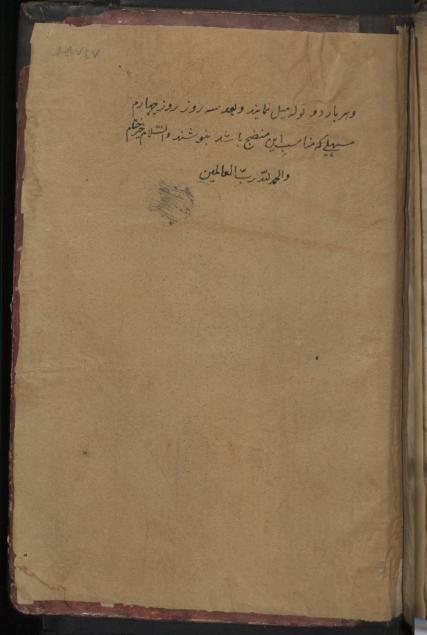 وهر بار دو توله میل نمایند و بعد سه روز روز چهارم
مسهلیکه مناسب این منضج باشد بنوشند والسلام خیر ختام
والحمد لله ربّ العالمین